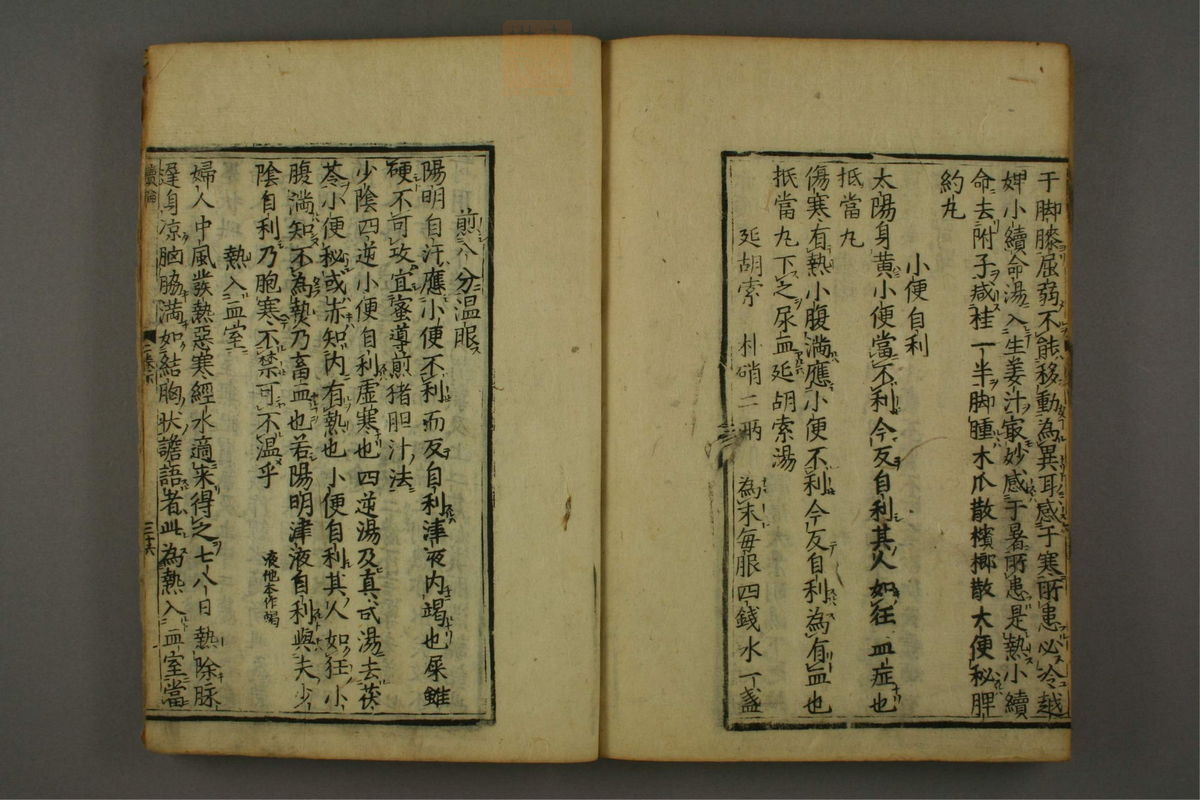 于脚膝屈弱不能移動為異耳感于寒所患必冷越
婢小續命湯入生姜汁最妙感于暑所患是熱小續
命去附子减桂一半脚腫木瓜散檳榔散大便秘脾
約丸
小便自利
太陽身黄小便當不利今反自利其人如狂血症也
抵當丸
傷寒有熱小腹満應小便不利今反自利為有血也
抵當丸下之尿血延胡索湯
延胡索 朴硝二兩 為末毎服四錢水一盞
煎八分温服
陽明自汗應小便不利而反自利津液内竭也屎雖
硬不可攻宜蜜導煎猪胆汁法
少陰四逆小便自利虚寒也四逆湯及真武湯去茯
苓小便秘或赤知内有熱也小便自利其人如狂小
腹満知不為熱乃畜血也若陽明津液自利與夫少
陰自利乃胞寒不禁可不温乎 液他本作竭
熱入血室
婦人中風發熱惡寒經水適来得之七八日熱除脉
遲身凉胸脇満如結胸状譫語者此為熱入血室當
三十六